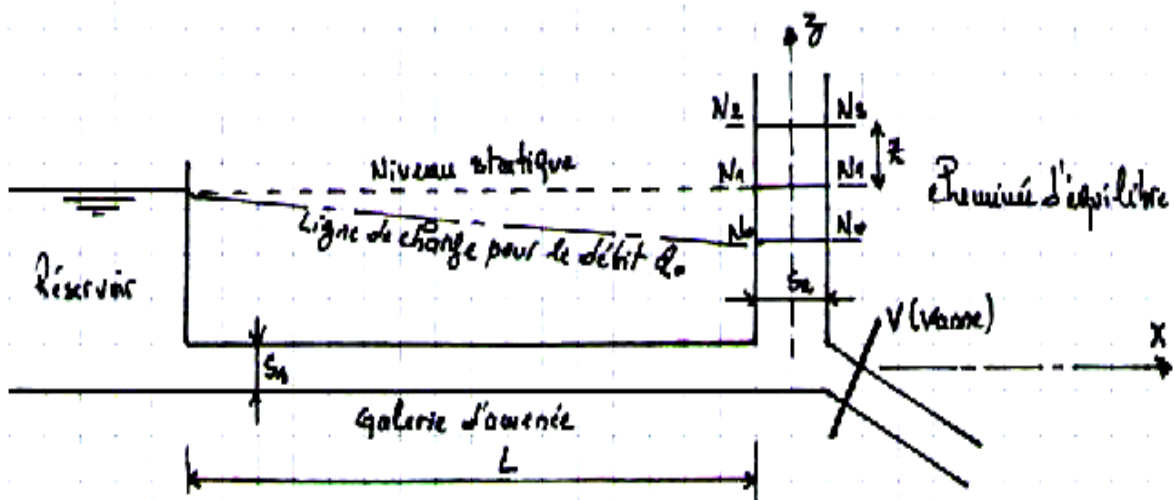 z
N2 N2
Niveau statique
z
N1 N1
Cheminée d'équilibre
Ligne de charge pour le débit Q₀
N0 N0
Réservoir
S2
V (Vanne)
X
S1
Galerie d'amenée
L